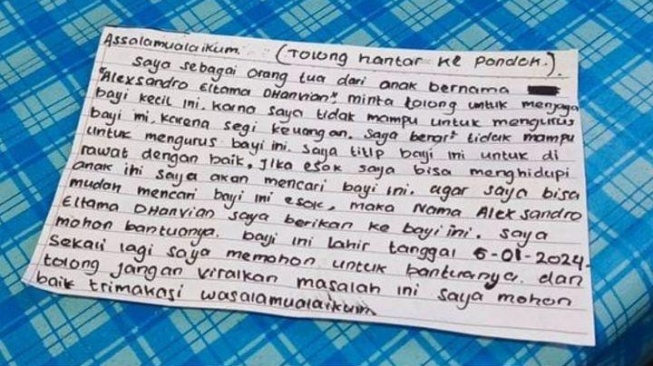 Assalamualaikum. (Tolong hantar ke pondok.).
Saya sebagai orang tua dari anak bernama
"Aleksandro Eltama Dhanvian" minta tolong untuk menjaga
bayi kecil ini. karna saya tidak mampu untuk mengurus
bayi ini. karena segi keuangan. saya benar² tidak mampu
untuk mengurus bayi ini. saya titip bayi ini untuk di
rawat dengan baik. Jika esok saya bisa menghidupi
anak ini saya akan mencari bayi ini. agar saya bisa
mudah mencari bayi ini esok. maka nama Aleksandro
Eltama Dhanvian saya berikan ke bayi ini. saya
mohon bantuanya. bayi ini lahir tanggal 6-01-2024.
Sekali lagi saya memohon untuk bantuanya. dan
tolong jangan viralkan masalah ini saya mohon
baik trimakasi wasalamualaikum